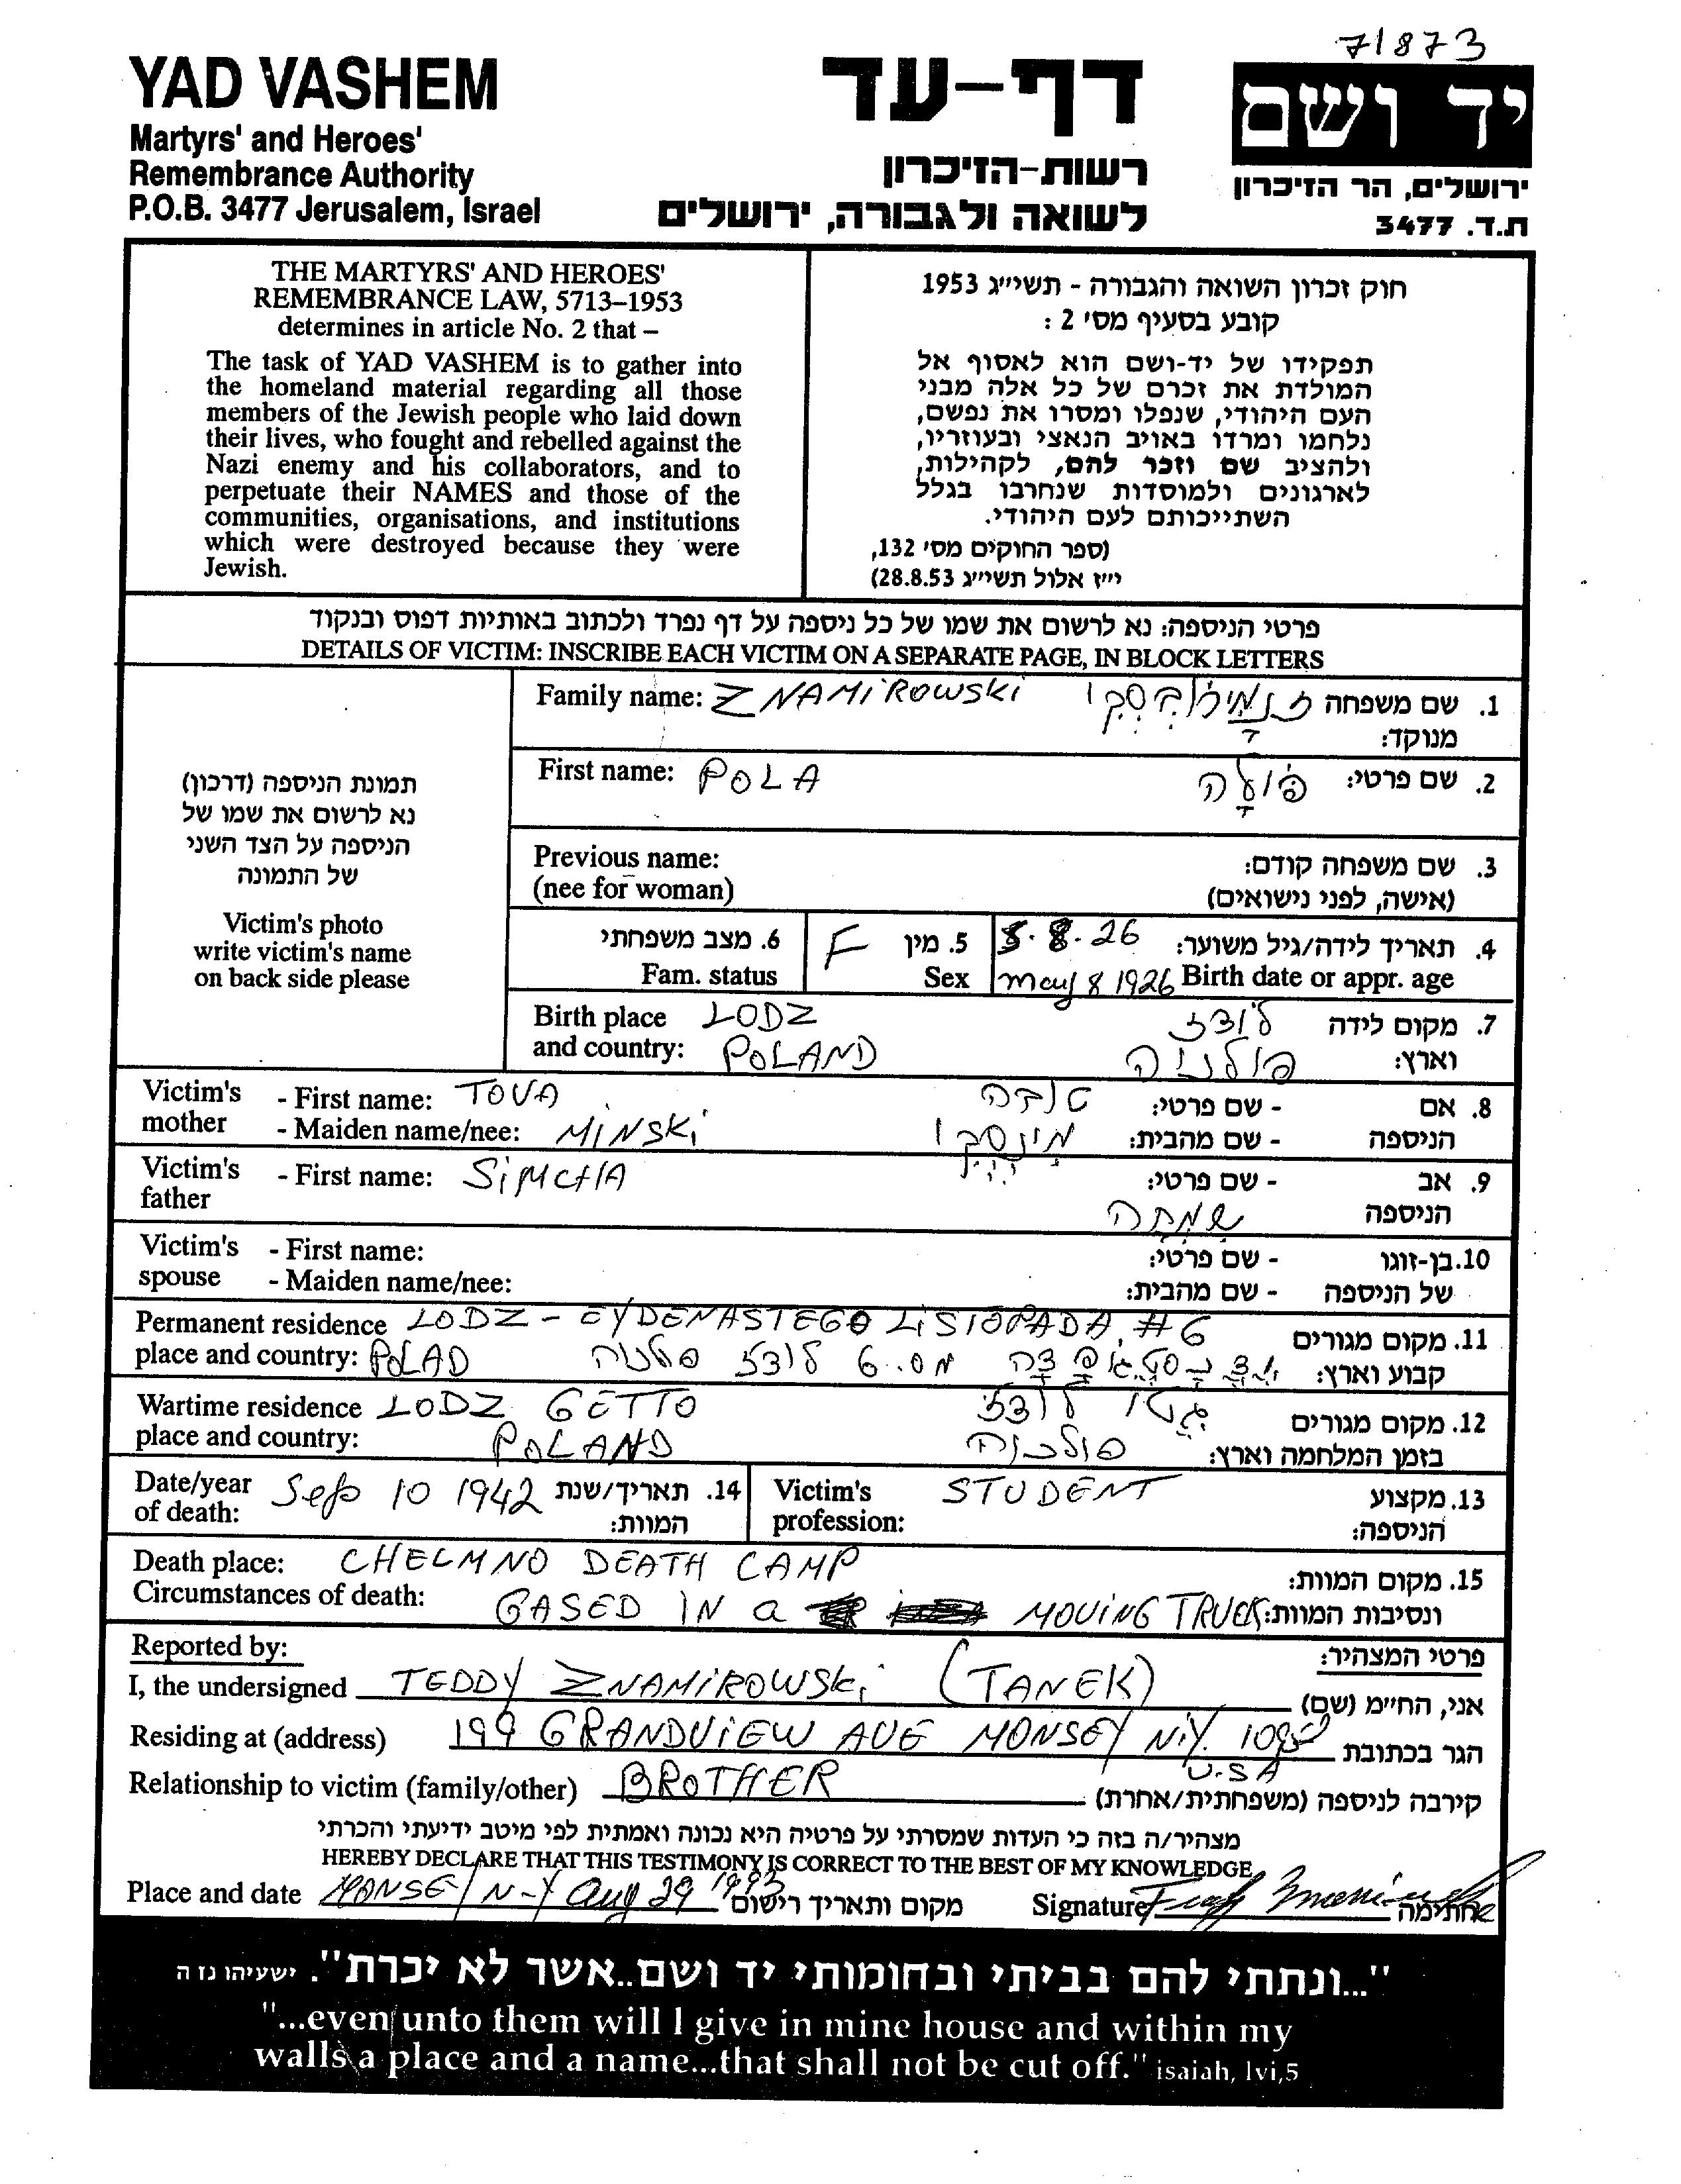 71873
YAD VASHEM
Martyrs' and Heroes'
Remembrance Authority
P.O.B. 3477 Jerusalem, Israel
דף-עד
רשות-הזיכרון
לשואה ולגבורה, ירושלים
יד ושם
ירושלים, הר הזיכרון
ת.ד. 3477
THE MARTYRS' AND HEROES'
REMEMBRANCE LAW, 5713–1953
determines in article No. 2 that –
The task of YAD VASHEM is to gather into
the homeland material regarding all those
members of the Jewish people who laid down
their lives, who fought and rebelled against the
Nazi enemy and his collaborators, and to
perpetuate their NAMES and those of the
communities, organisations, and institutions
which were destroyed because they were
Jewish.
חוק זכרון השואה והגבורה - תשי״ג 1953
קובע בסעיף מס׳ 2 :
תפקידו של יד-ושם הוא לאסוף אל
המולדת את זכרם של כל אלה מבני
העם היהודי, שנפלו ומסרו את נפשם,
נלחמו ומרדו באויב הנאצי ובעוזריו,
ולהציב שם וזכר להם, לקהילות,
לארגונים ולמוסדות שנחרבו בגלל
השתייכותם לעם היהודי.
(ספר החוקים מס׳ 132,
י״ז אלול תשי״ג 28.8.53)
פרטי הניספה: נא לרשום את שמו של כל ניספה על דף נפרד ולכתוב באותיות דפוס ובנקוד
DETAILS OF VICTIM: INSCRIBE EACH VICTIM ON A SEPARATE PAGE, IN BLOCK LETTERS
תמונת הניספה (דרכון)
נא לרשום את שמו של
הניספה על הצד השני
של התמונה
Victim's photo
write victim's name
on back side please
Family name: ZNAMiROWSKi
1. שם משפחה
מנוקד:
First name: POLA
2. שם פרטי: פולה
Previous name:
(nee for woman)
3. שם משפחה קודם:
(אישה, לפני נישואים)
6. מצב משפחתי
Fam. status
5. מין
Sex F
4. תאריך לידה/גיל משוער: 5.8.26
Birth date or appr. age May 8 1926
Birth place LODZ
and country: POLAND
7. מקום לידה לודז
וארץ: פולניה
Victim's mother - First name: TOVA
- Maiden name/nee: MINSKi
8. אם הניספה - שם פרטי: טובה
- שם מהבית: מינסקי
Victim's father - First name: SiMCHA
9. אב הניספה - שם פרטי:
שמחה
Victim's spouse - First name:
- Maiden name/nee:
10. בן-זוגו של הניספה - שם פרטי:
- שם מהבית:
Permanent residence LODZ – EYDENASTEGO LiSTOPADA, #6
place and country: POLAD
11. מקום מגורים
קבוע וארץ: 6 לודז
Wartime residence LODZ GETTO
place and country: POLAND
12. מקום מגורים גטו לודז
בזמן המלחמה וארץ:
Date/year of death: Sep 10 1942
14. תאריך/שנת המוות:
Victim's profession: STUDENT
13. מקצוע הניספה:
Death place: CHELMNO DEATH CAMP
Circumstances of death: GASED IN a MOVING TRUCK
15. מקום המוות:
ונסיבות המוות:
Reported by:
פרטי המצהיר:
I, the undersigned TEDDY ZNAMIROWSKi (TANEK) אני, החי״מ (שם)
Residing at (address) 199 GRANDVIEW AVE MONSEY N.Y. 10952 הגר בכתובת
U.SA
Relationship to victim (family/other) BROTHER קירבה לניספה (משפחתית/אחרת)
מצהיר/ה בזה כי העדות שמסרתי על פרטיה היא נכונה ואמתית לפי מיטב ידיעתי והכרתי
HEREBY DECLARE THAT THIS TESTIMONY IS CORRECT TO THE BEST OF MY KNOWLEDGE
Place and date MONSEY N-Y Aug 29 1993 מקום ותאריך רישום
Signature חתימה
"...ונתתי להם בביתי ובחומותי יד ושם..אשר לא יכרת". ישעיהו נו ה
"...even unto them will I give in mine house and within my
walls a place and a name...that shall not be cut off." isaiah, lvi,5